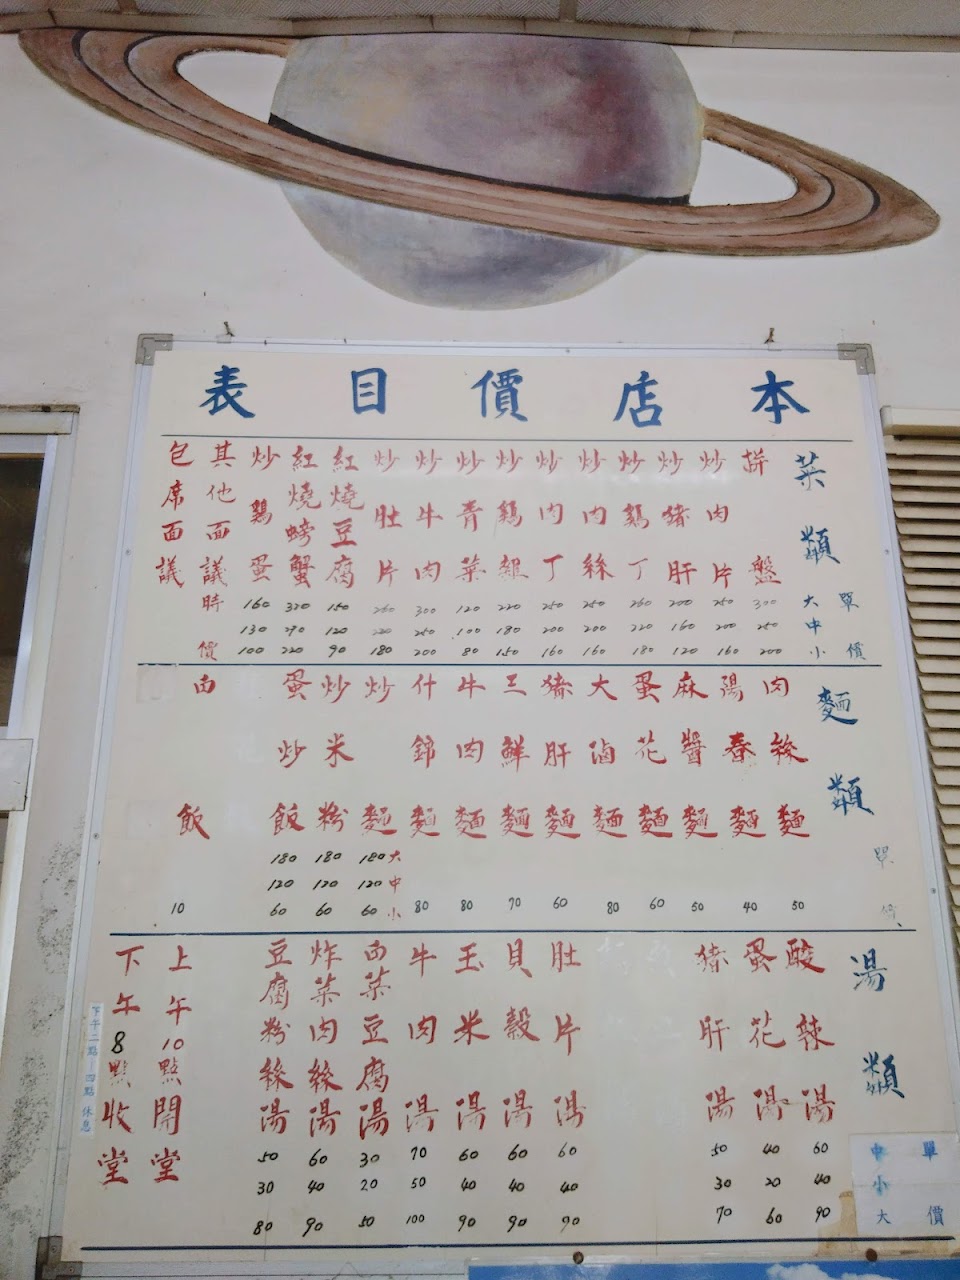 本店價目表
菜類
單價
大
中
小
拼盤 300 250 200
炒肉片 250 200 160
炒豬肝 200 160 120
炒鷄丁 260 220 180
炒肉絲 250 200 160
炒肉丁 250 200 160
炒鷄雜 220 180 150
炒青菜 120 100 80
炒牛肉 300 250 200
炒肚片 260 220 180
紅燒豆腐 150 120 90
紅燒螃蟹 320 270 220
炒鷄蛋 160 130 100
其他面議 時價
包席面議
麵類
單價
肉絲麵 50
陽春麵 40
麻醬麵 50
蛋花麵 60
大滷麵 80
豬肝麵 60
三鮮麵 70
牛肉麵 80
什錦麵 80
大
中
小
炒麵 180 120 60
炒米粉 180 120 60
蛋炒飯 180 120 60
白飯 10
湯類
單價
中
小
大
酸辣湯 60 40 90
蛋花湯 40 20 60
豬肝湯 50 30 70
肚片湯 60 40 90
貝殼湯 60 40 90
玉米湯 60 40 90
牛肉湯 70 50 100
白菜豆腐湯 30 20 50
炸菜肉絲湯 60 40 90
豆腐粉絲湯 50 30 80
上午10點開堂
下午8點收堂
下午二點－四點 休息